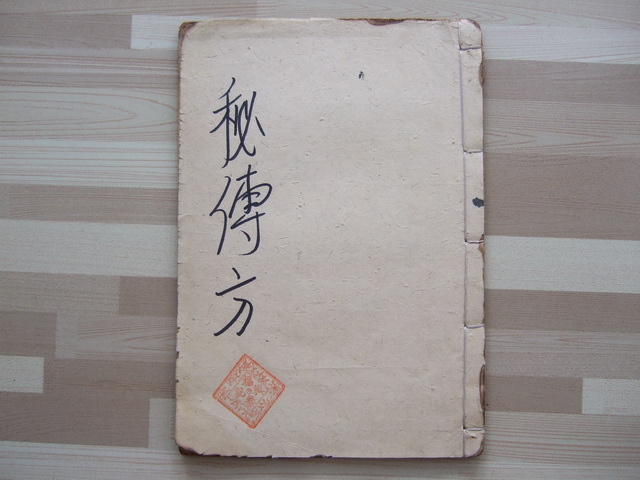 秘傳方